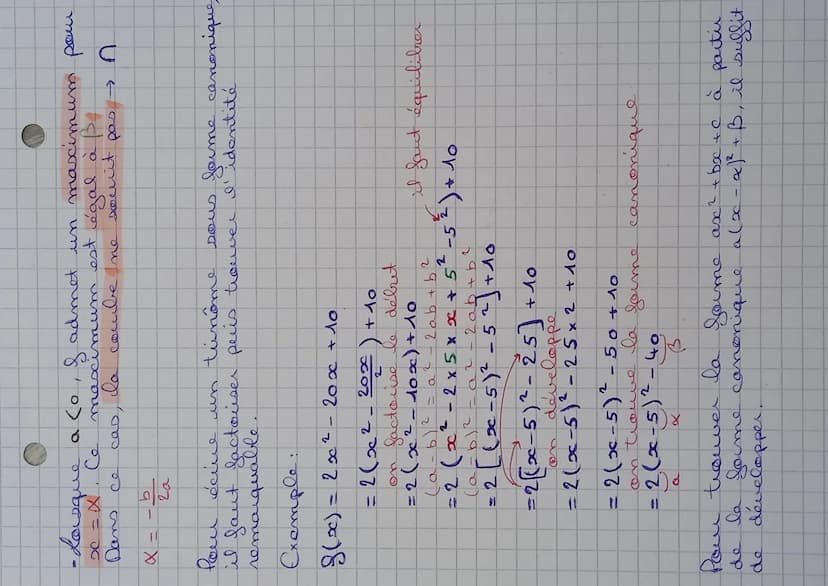 - Lorsque a < 0, f admet un maximum pour
x = α. Ce maximum est égal à β,
Dans ce cas, la courbe ne sourit pas, → ∩
α = -b/2a
Pour écrire un trinôme sous forme canonique,
il faut factoriser puis trouver l'identité
remarquable.
Exemple:
f(x) = 2x² - 20x + 10
= 2(x² - 20x/2) + 10
on factorise le début
= 2(x² - 10x) + 10
(a - b)² = a² - 2ab + b² il faut équilibrer
= 2(x² - 2 × 5 × x + 5² - 5²) + 10
(a - b)² = a² - 2ab + b²
= 2[(x - 5)² - 5²] + 10
= 2[(x - 5)² - 25] + 10
on développe
= 2(x - 5)² - 25 × 2 + 10
= 2(x - 5)² - 50 + 10
on trouve la forme canonique
= 2(x - 5)² - 40
a α β
Pour trouver la forme ax² + bx + c à partir
de la forme canonique a(x - α)² + β, il suffit
de développer.